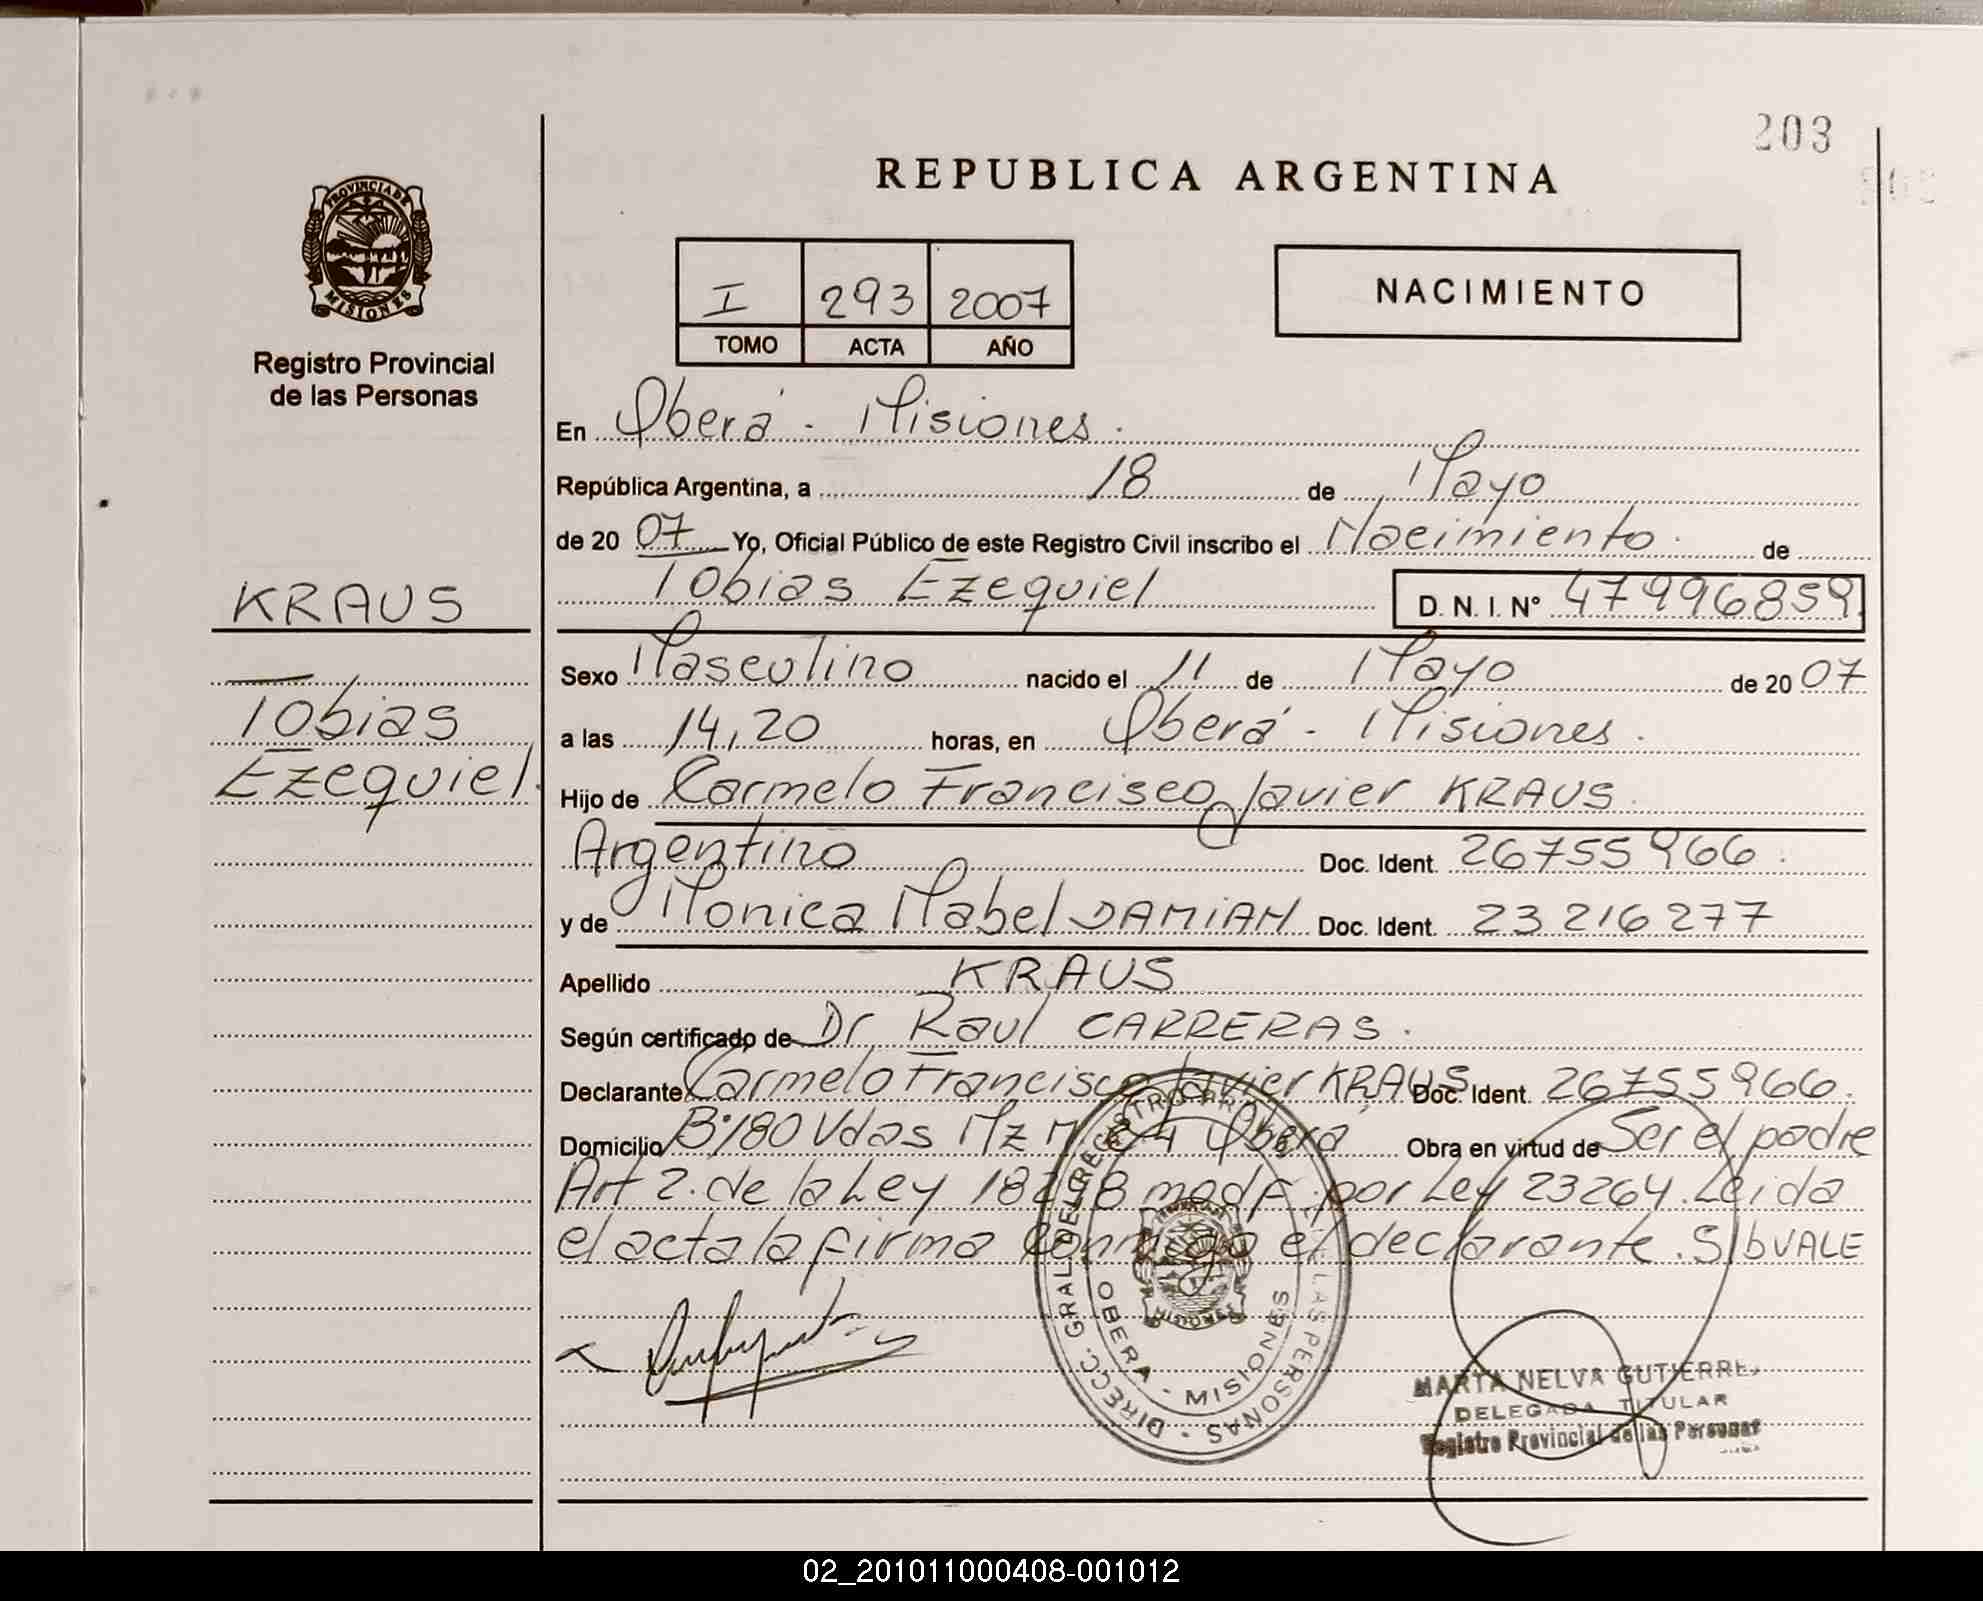 203
PROVINCIA DE
MISIONES
Registro Provincial
de las Personas
REPUBLICA ARGENTINA
I 293 2007
TOMO ACTA AÑO
NACIMIENTO
En Oberá - Misiones.
República Argentina, a 18 de Mayo
de 20 07 Yo, Oficial Público de este Registro Civil inscribo el Nacimiento de
Tobias Ezequiel D. N. I. Nº 47996859
KRAUS
Tobias
Ezequiel.
Sexo Masculino nacido el 11 de Mayo de 20 07
a las 14,20 horas, en Oberá - Misiones.
Hijo de Carmelo Francisco Javier KRAUS.
Argentino Doc. Ident. 26755966.
y de Monica Mabel DAMIAN Doc. Ident. 23 216 277
Apellido KRAUS
Según certificado de Dr Raul CARRERAS.
Declarante Carmelo Francisco Javier KRAUS Doc. Ident. 26755966.
Domicilio Bº180 Vdas Mz M Oberá Obra en virtud de Ser el padre
Art 2. de la Ley 18248 modf. por Ley 23264. Leida
el acta la firma conmigo el declarante. S/b VALE
DIRECC. GRAL. DEL REGISTRO PROV. DE LAS PERSONAS
OBERA - MISIONES
MARTA NELVA GUTIERRE
DELEGADA TITULAR
Registro Provincial de las Personas
02_201011000408-001012